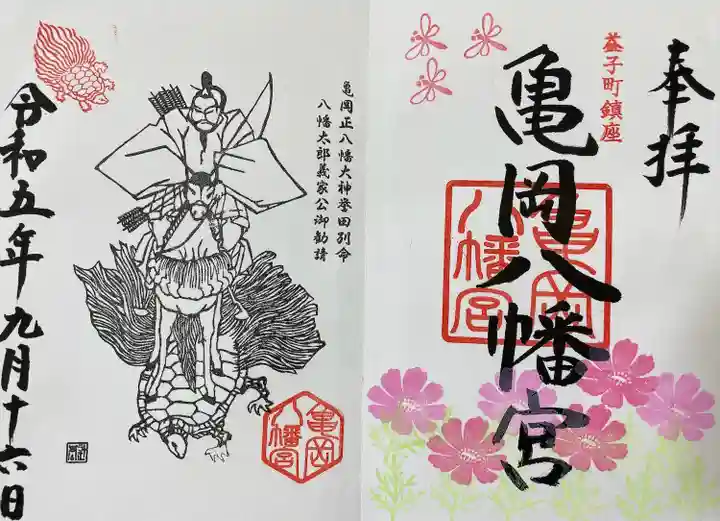 奉拝
益子町鎮座
亀岡八幡宮
亀岡八幡宮
亀岡正八幡大神誉田別命
八幡太郎義家公御勧請
亀岡八幡宮
令和五年九月十六日